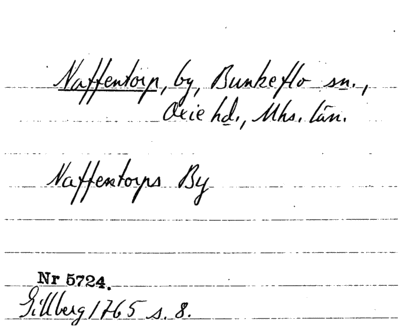 Naffentorp, by, Bunkeflo sn.,
Oxie hd., Mhs. län.
Naffentorps By
Nr 5724.
Gillberg 1765 s. 8.